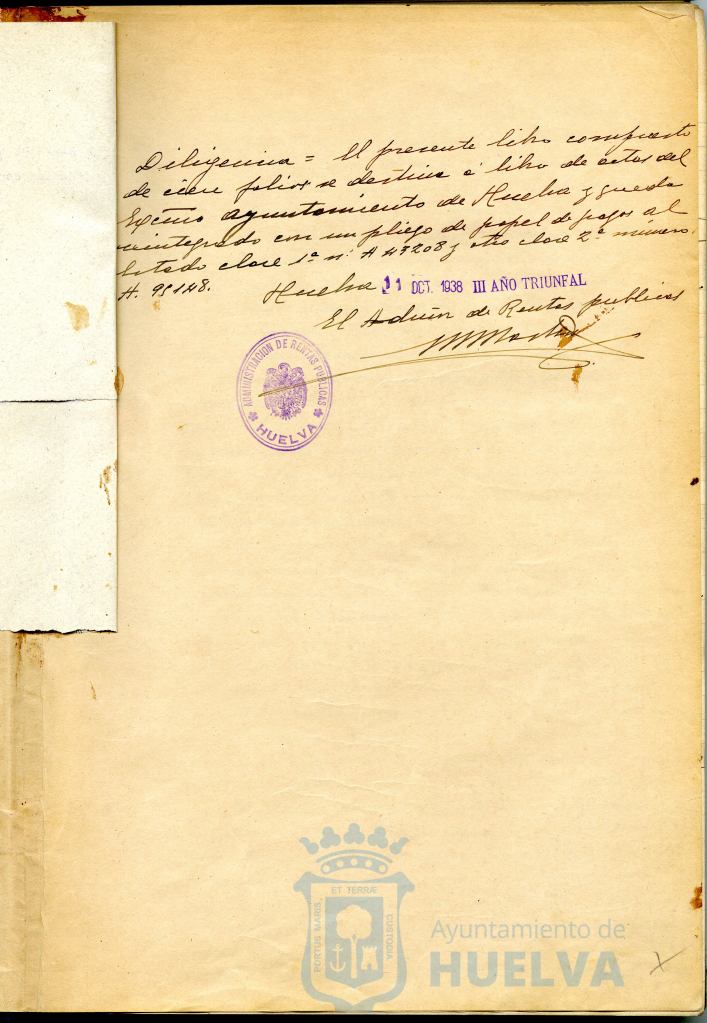 Diligencia = El presente libro compuesto
de cien folios se destina á libro de actas del
Excmo ayuntamiento de Huelva y queda
reintegrado con un pliego de papel de pagos al
Estado clase 1ª nº A 47208 y otro clase 2ª numero
A. 95148.
Huelva 11 OCT. 1938 III AÑO TRIUNFAL
El Admón de Rentas publicas
ADMINISTRACION DE RENTAS PUBLICAS
HUELVA
PORTUS MARIS ET TERRÆ CUSTODIA
Ayuntamiento de
HUELVA